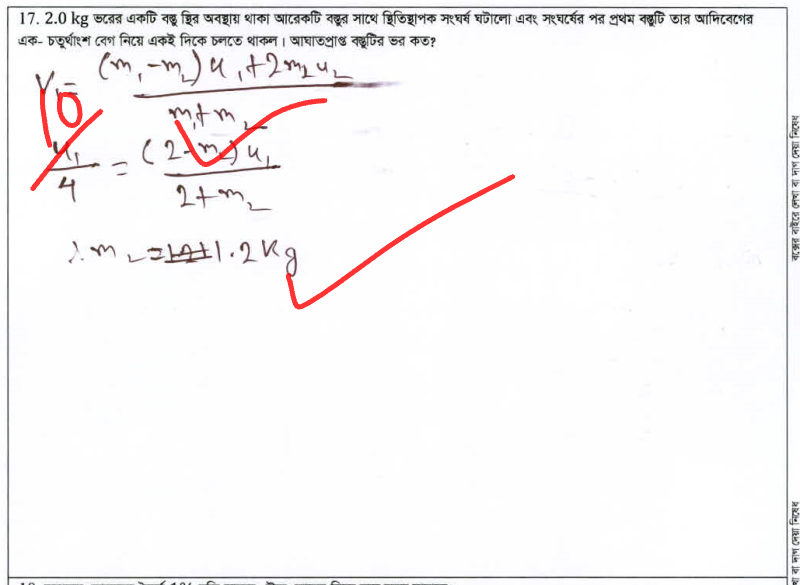 17. 2.0 kg ভরের একটি বস্তু স্থির অবস্থায় থাকা আরেকটি বস্তুর সাথে স্থিতিস্থাপক সংঘর্ষ ঘটালো এবং সংঘর্ষের পর প্রথম বস্তুটি তার আদিবেগের
এক- চতুর্থাংশ বেগ নিয়ে একই দিকে চলতে থাকল। আঘাতপ্রাপ্ত বস্তুটির ভর কত?
V₁ = (m₁-m₂)u₁+2m₂u₂ / m₁+m₂
u₁/4 = (2-m₂)u₁ / 2+m₂
∴ m₂ = 1.2 kg
বক্সের বাইরে লেখা বা দাগ দেয়া নিষেধ
বা দাগ দেয়া নিষেধ